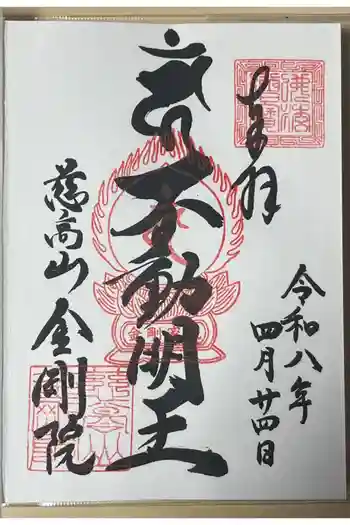 奉拝
令和八年
四月廿四日
不動明王
慈高山
金剛院